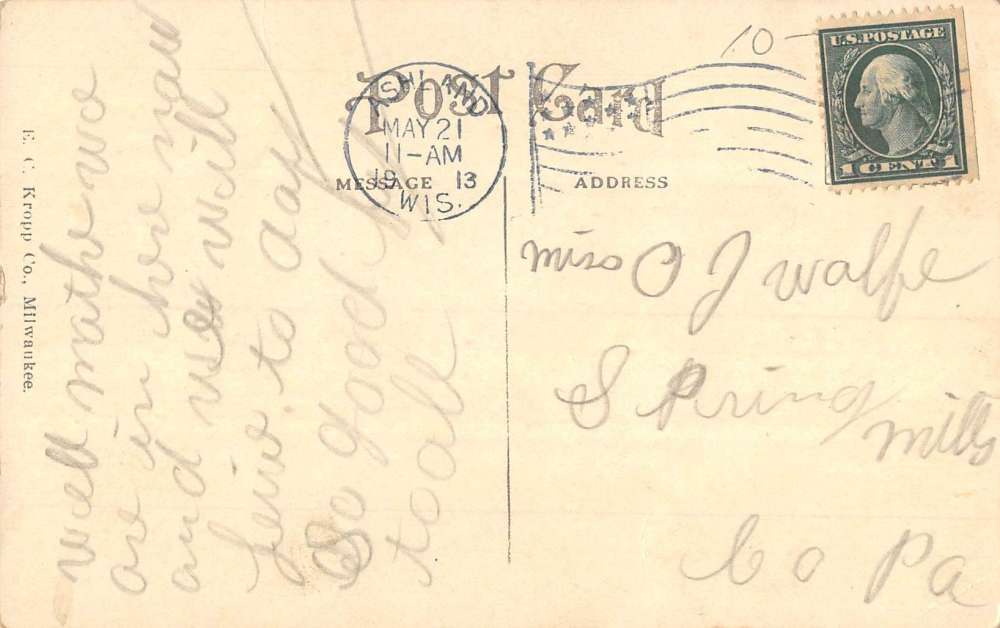 Post Card
MESSAGE
ADDRESS
SHLAND
MAY 21
11-AM
19 13
WIS.
10-
U.S. POSTAGE
1 CENT 1
E. C. Kropp Co., Milwaukee.
Well mathe we
are in here now
and we will
Leive to day
So good by
to all
miss O J walfe
Spring
mills
Co Pa